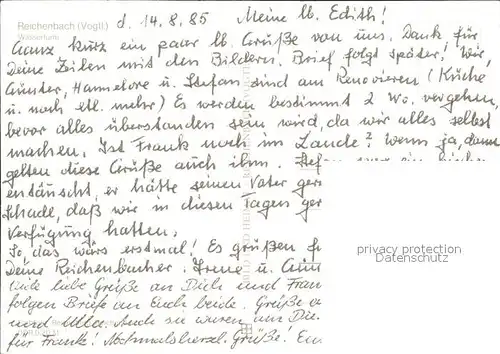 Reichenbach (Vogtl.)
Wasserturm
d. 14.8.85 Meine lb. Edith!
Ganz kurz ein paar lb. Grüße von uns. Dank für
Deine Zeilen mit den Bildern. Brief folgt später! Wir,
Günter, Hannelore u. Stefan sind am Renovieren (Küche
u. noch etl. mehr) Es werden bestimmt 2 Wo. vergehen,
bevor alles überstanden sein wird, da wir alles selbst
machen. Ist Frank noch im Lande? Wenn ja, dann
gelten diese Grüße auch ihm. Stefan war ein bischen
entäuscht, er hätte seinen Vater ger
Schade, daß wir in diesen Tagen ger
Verfügung hatten.
So, das wärs erstmal! Es grüßen
Deine Reichenbacher: Irene u. Gün
Viele liebe Grüße an Dich und Fran
folgen Briefe an Euch beide. Grüße
und Utta. Auch sie waren um Die
für Frank! Nochmals herzl. Grüße! Eu
privacy protection
Datenschutz